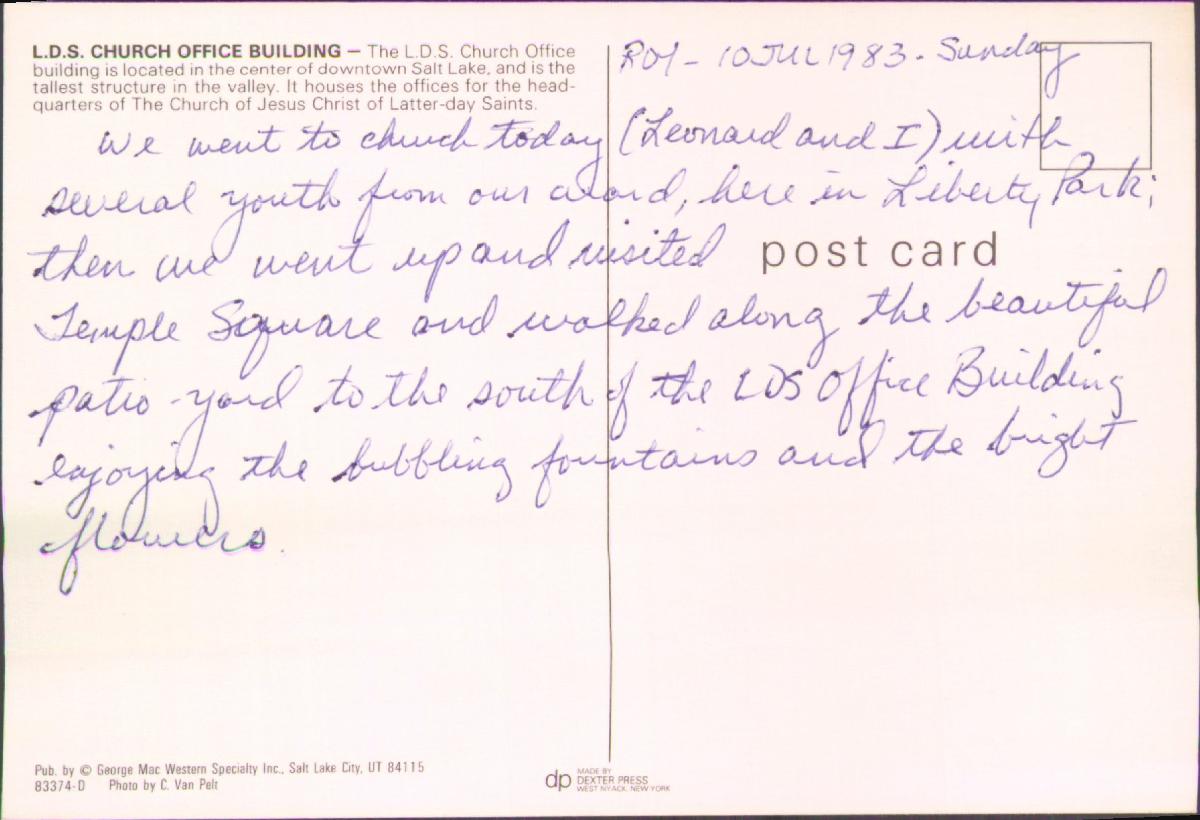 L.D.S. CHURCH OFFICE BUILDING — The L.D.S. Church Office
building is located in the center of downtown Salt Lake, and is the
tallest structure in the valley. It houses the offices for the head-
quarters of The Church of Jesus Christ of Latter-day Saints.
10 JUL 1983 - Sunday
We went to church today (Leonard and I) with
several youth from our ward, here in Liberty Park;
then we went up and visited
post card
Temple Square and walked along the beautiful
patio-yard to the south of the LDS Office Building
enjoying the bubbling fountains and the bright
flowers.
Pub. by © George Mac Western Specialty Inc., Salt Lake City, UT 84115
83374-D Photo by C. Van Pelt
dp MADE BY
DEXTER PRESS
WEST NYACK, NEW YORK